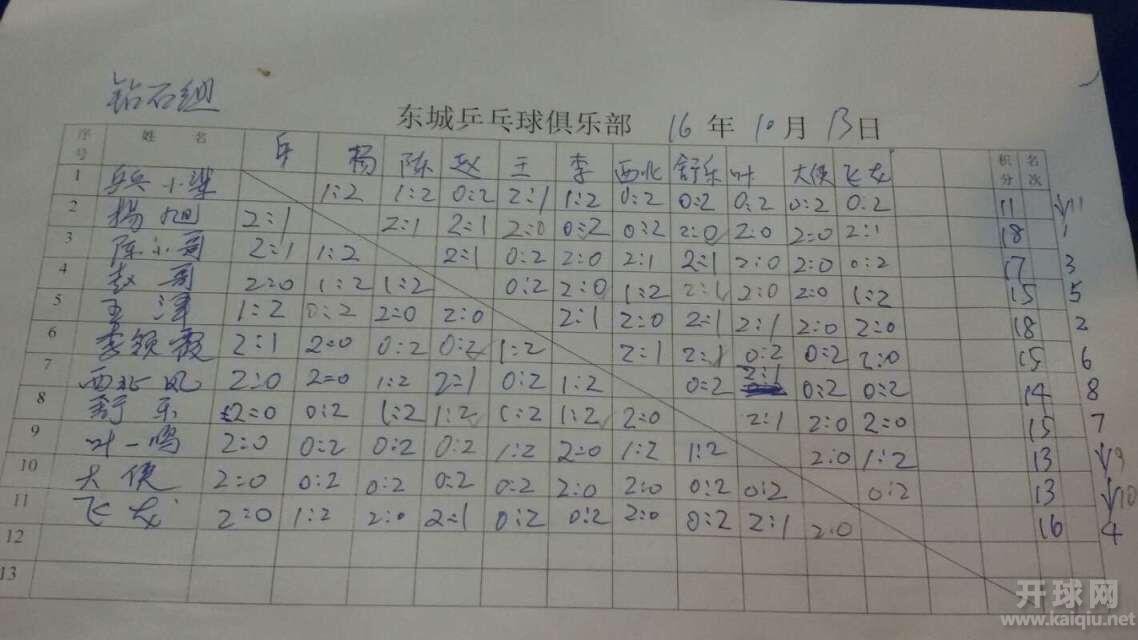 钻石组
东城乒乓球俱乐部 16年10月13日
序号 姓名 兵 杨 陈 赵 王 李 西北 舒乐 叶 大侠 飞龙 积分 名次
1 兵兵小柴 1:2 1:2 0:2 2:1 1:2 0:2 0:2 0:2 0:2 0:2 11 ↓11
2 杨旭 2:1 2:1 2:1 2:0 0:2 0:2 2:0 2:0 2:0 2:1 18 1
3 陈小哥 2:1 1:2 2:1 0:2 2:0 2:1 2:1 2:0 2:0 0:2 17 3
4 赵哥 2:0 1:2 1:2 0:2 2:0 1:2 2:1 2:0 2:0 1:2 15 5
5 王泽 1:2 0:2 2:0 2:0 2:1 2:0 2:1 2:1 2:0 2:0 18 2
6 李颖毅 2:1 2:0 0:2 0:2 1:2 2:1 2:1 0:2 0:2 2:0 15 6
7 西北风 2:0 2:0 1:2 2:1 0:2 1:2 0:2 2:1 0:2 0:2 14 8
8 舒乐 2:0 0:2 1:2 1:2 1:2 1:2 2:0 2:1 2:0 2:0 15 7
9 叶一鸣 2:0 0:2 0:2 0:2 1:2 2:0 1:2 1:2 2:0 1:2 13 ↓9
10 大侠 2:0 0:2 0:2 0:2 0:2 2:0 2:0 0:2 0:2 0:2 13 ↓10
11 飞龙 2:0 1:2 2:0 2:1 0:2 0:2 2:0 0:2 2:1 2:0 16 4
12
13
开球网
www.kaiqiu.net